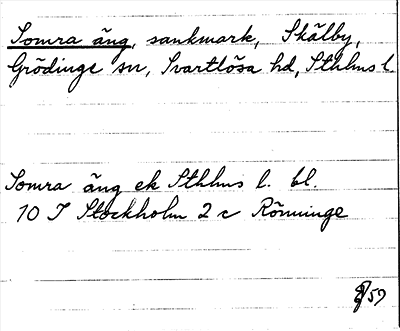 Somra äng, sankmark, Skälby,
Grödinge sn, Svartlösa hd, Sthlms l.
Somra äng ek Sthlms l. bl.
10 I Stockholm 2 c Rönninge
59